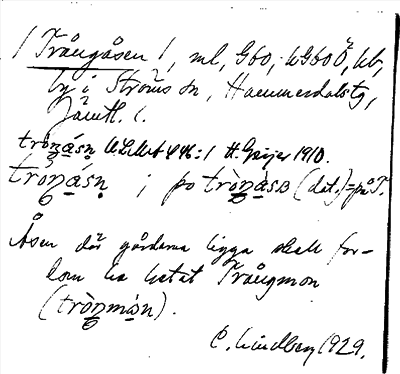 /Trångåsen/, ml, G60, kG60Ö, kb,
by i Ströms sn, Hammerdals tg,
Jämtl. l.
trò̀ŋásn̥ ULMA 446:1 H. Geijer 1910.
tròŋásn̥ ; po tròŋásɒ (dat.)=på T.
Åsen där gårdarna ligga skall for-
dom ha hetat Trångmon
(tròŋmón).
C. Lindberg 1929.